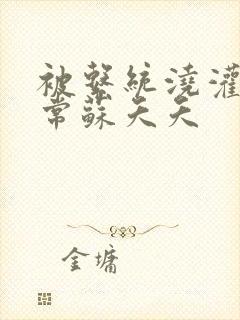 被繫統澆灌
常蘇天天
金墉